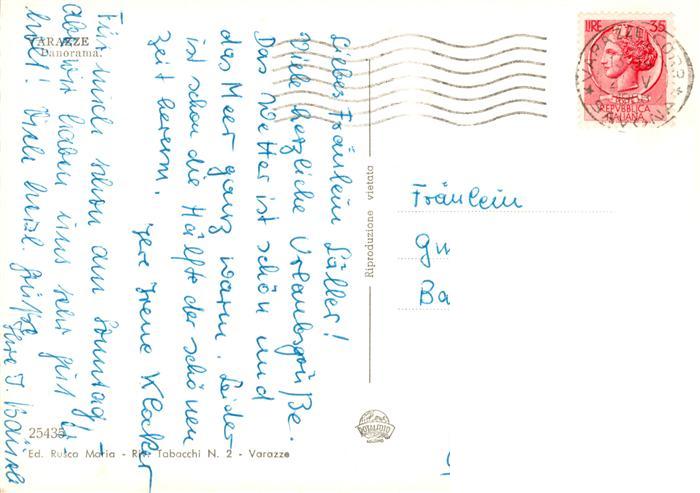 VARAZZE
Panorama.
LIRE 35
REPVBBLICA
ITALIANA
Liebes Fräulein Läller!
Viele herzliche Urlaubsgrüße.
Das Wetter ist schön und
das Meer ganz warm. Leider
ist schon die Hälfte der schönen
Zeit herum.
Ihre Irene Klocker
Für mich schon am Sonntag, -
aber wir haben uns sehr gut
erholt! Viele herzl. Grüße
Ihre I.
Fräulein
Gu
Ba
Riproduzione vietata
25435
Ed. Rusca Maria - Riv. Tabacchi N. 2 - Varazze